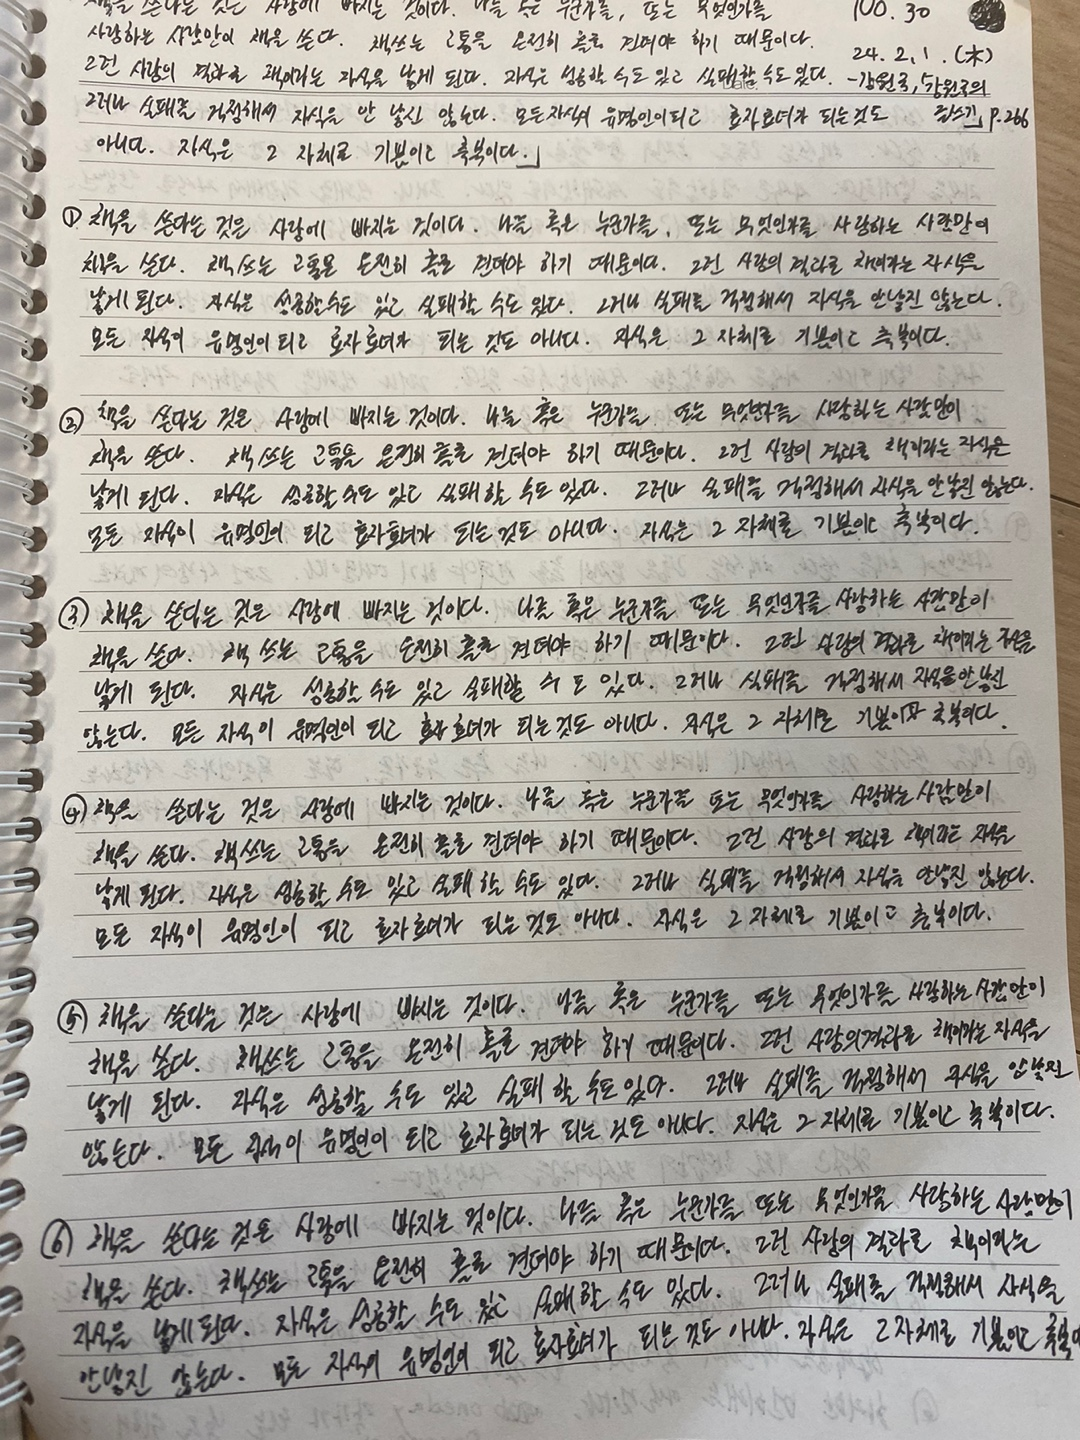 책을 쓴다는 것은 사랑에 빠지는 것이다. 나를 혹은 누군가를, 또는 무엇인가를
100. 30
사랑하는 사람만이 책을 쓴다. 책쓰는 고통을 온전히 홀로 견뎌야 하기 때문이다.
24. 2. 1. (木)
그런 사랑의 결과로 책이라는 자식을 낳게 된다. 자식은 성공할 수도 있고 실패할 수도 있다. -강원국, 「강원국의
그러나 실패를 걱정해서 자식을 안 낳진 않는다. 모든 자식이 유명인이 되고 효자효녀가 되는 것도 글쓰기」 p.266
아니다. 자식은 그 자체로 기쁨이고 축복이다.」
① 책을 쓴다는 것은 사랑에 빠지는 것이다. 나를 혹은 누군가를, 또는 무엇인가를 사랑하는 사람만이
책을 쓴다. 책쓰는 고통을 온전히 홀로 견뎌야 하기 때문이다. 그런 사랑의 결과로 책이라는 자식을
낳게 된다. 자식은 성공할 수도 있고 실패할 수도 있다. 그러나 실패를 걱정해서 자식을 안 낳진 않는다.
모든 자식이 유명인이 되고 효자효녀가 되는 것도 아니다. 자식은 그 자체로 기쁨이고 축복이다.
② 책을 쓴다는 것은 사랑에 빠지는 것이다. 나를 혹은 누군가를 또는 무엇인가를 사랑하는 사람만이
책을 쓴다. 책 쓰는 고통을 온전히 홀로 견뎌야 하기 때문이다. 그런 사랑의 결과로 책이라는 자식은
낳게 된다. 자식은 성공할 수도 있고 실패할 수도 있다. 그러나 실패를 걱정해서 자식을 안 낳진 않는다.
모든 자식이 유명인이 되고 효자효녀가 되는 것도 아니다. 자식은 그 자체로 기쁨이고 축복이다.
③ 책을 쓴다는 것은 사랑에 빠지는 것이다. 나를 혹은 누군가를 또는 무엇인가를 사랑하는 사람만이
책을 쓴다. 책 쓰는 고통을 온전히 홀로 견뎌야 하기 때문이다. 그런 사랑의 결과로 책이라는 자식을
낳게 된다. 자식은 성공할 수도 있고 실패할 수 도 있다. 그러나 실패를 걱정해서 자식을 안 낳진
않는다. 모든 자식이 유명인이 되고 효자효녀가 되는 것도 아니다. 자식은 그 자체로 기쁨이고 축복이다.
④ 책을 쓴다는 것은 사랑에 빠지는 것이다. 나를 혹은 누군가를 또는 무엇인가를 사랑하는 사람만이
책을 쓴다. 책쓰는 고통을 온전히 홀로 견뎌야 하기 때문이다. 그런 사랑의 결과로 책이라는 자식을
낳게 된다. 자식은 성공할 수도 있고 실패할 수도 있다. 그러나 실패를 걱정해서 자식을 안낳진 않는다.
모든 자식이 유명인이 되고 효자효녀가 되는 것도 아니다. 자식은 그 자체로 기쁨이고 축복이다.
⑤ 책을 쓴다는 것은 사랑에 빠지는 것이다. 나를 혹은 누군가를 또는 무엇인가를 사랑하는 사람만이
책을 쓴다. 책쓰는 고통을 온전히 홀로 견뎌야 하기 때문이다. 그런 사랑의 결과로 책이라는 자식을
낳게 된다. 자식은 성공할 수도 있고 실패 할 수도 있다. 그러나 실패를 걱정해서 자식을 안낳진
않는다. 모든 자식이 유명인이 되고 효자효녀가 되는 것도 아니다. 자식은 그 자체로 기쁨이고 축복이다.
⑥ 책을 쓴다는 것은 사랑에 빠지는 것이다. 나를 혹은 누군가를 또는 무엇인가를 사랑하는 사람만이
책을 쓴다. 책쓰는 고통을 온전히 홀로 견뎌야 하기 때문이다. 그런 사랑의 결과로 책이라는
자식을 낳게 된다. 자식은 성공할 수도 있고 실패할 수도 있다. 그러나 실패를 걱정해서 자식을
안낳진 않는다. 모든 자식이 유명인이 되고 효자효녀가 되는 것도 아니다. 자식은 그 자체로 기쁨이고